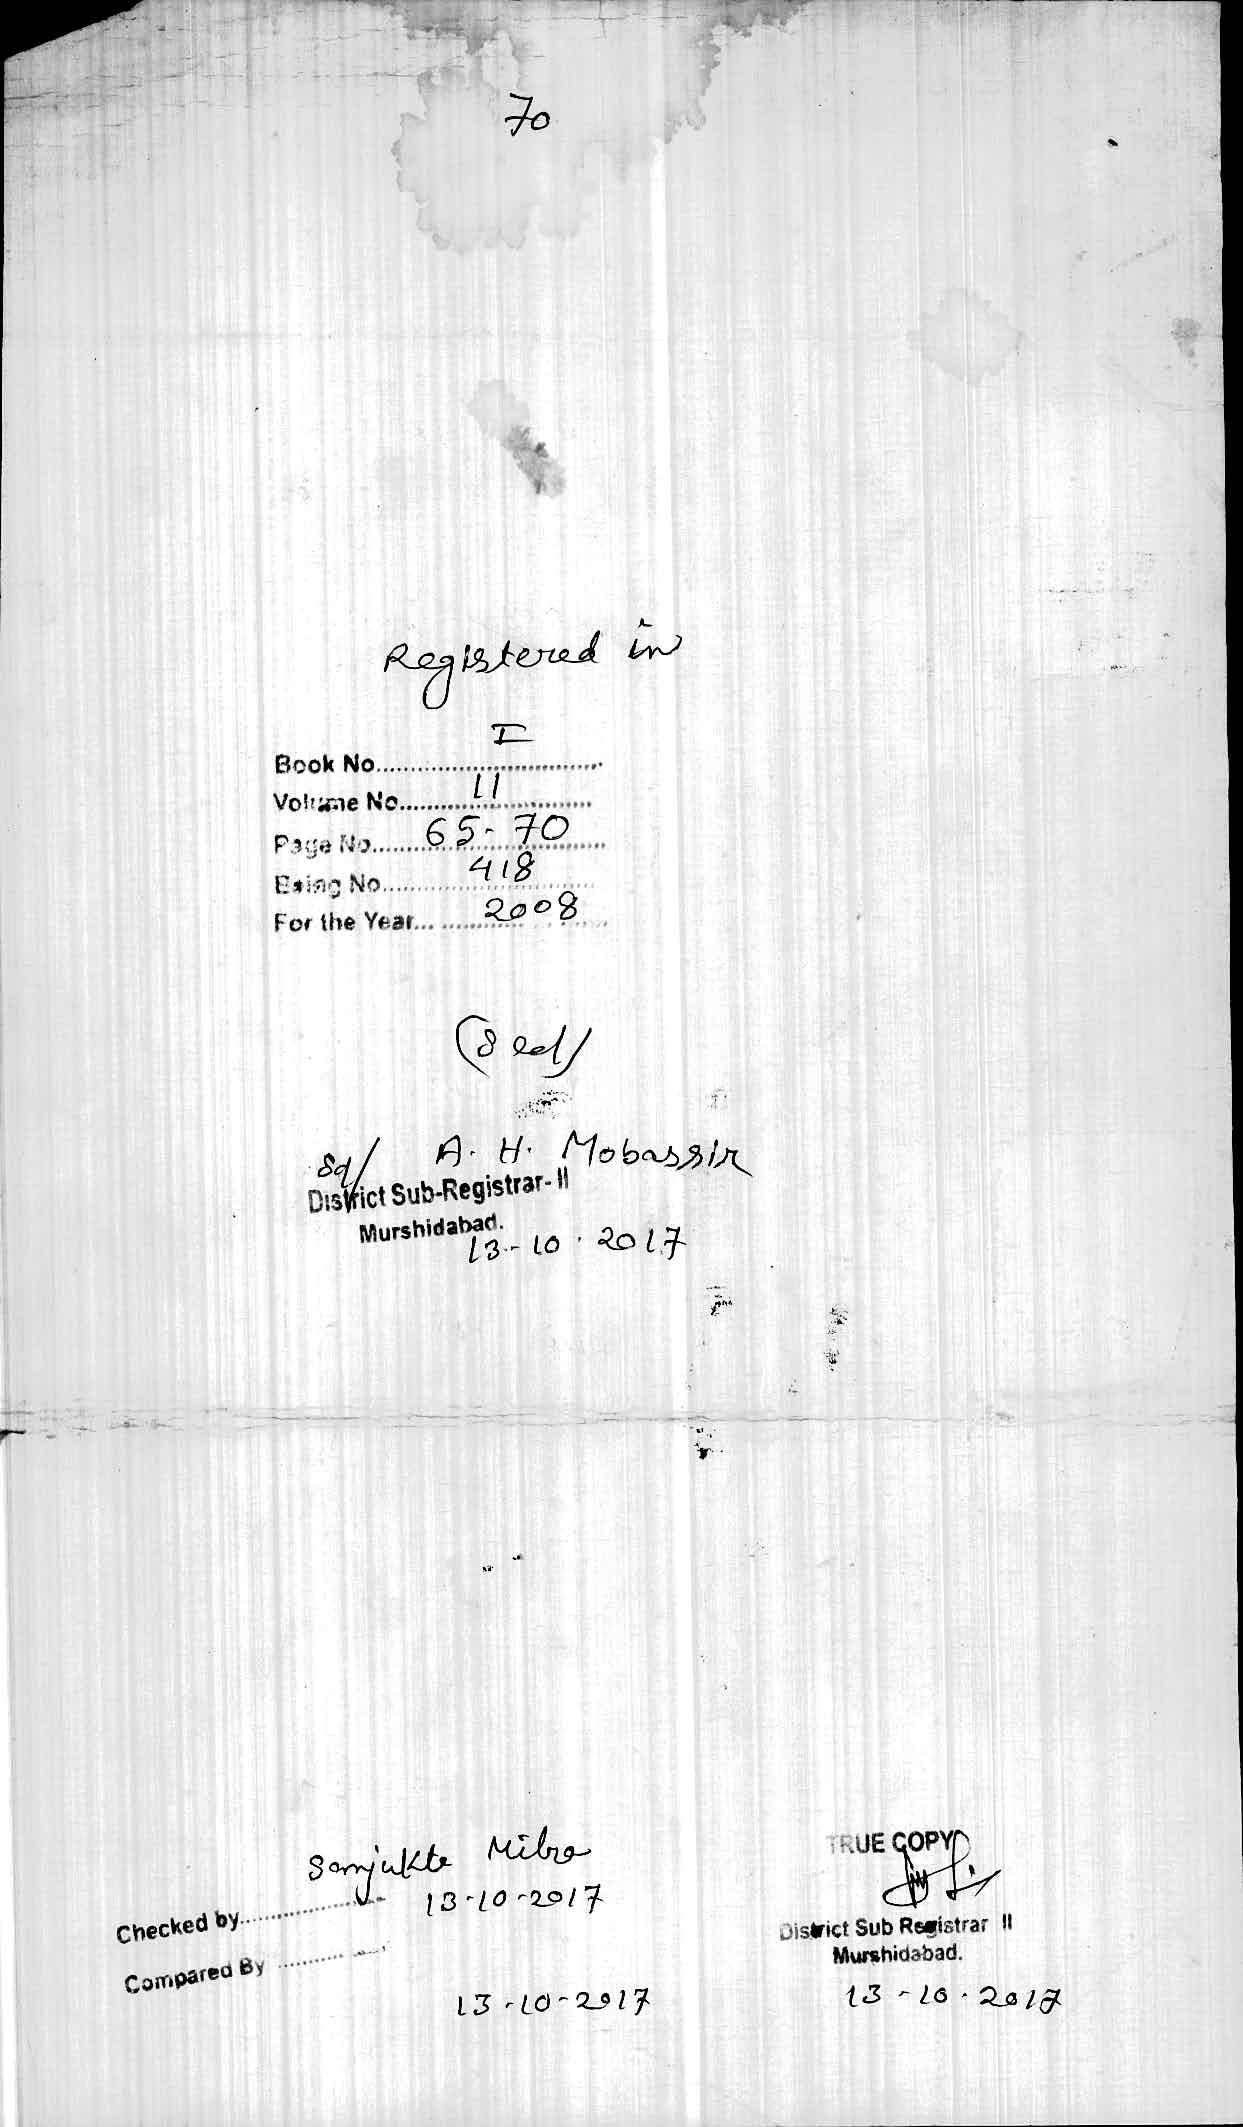 70
Registered in
Book No. I
Volume No. 11
Page No. 65-70
Being No. 418
For the Year 2008
(Seal)
Sd/ A. H. Mobassir
District Sub-Registrar-II
Murshidabad.
13-10.2017
Sanjukta Mitra
Checked by 13-10-2017
Compared By
13-10-2017
TRUE COPY
District Sub Registrar II
Murshidabad.
13-10.2017